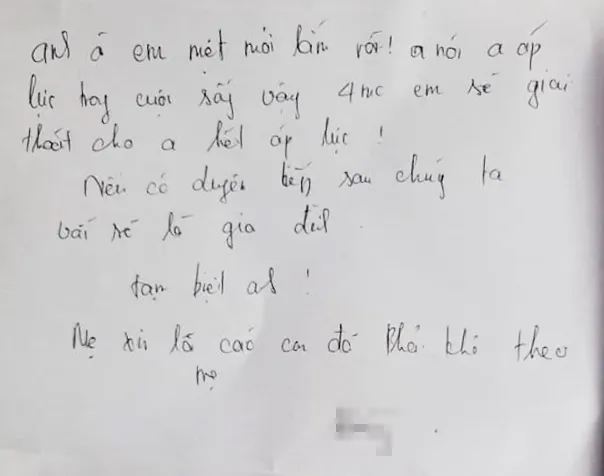 anh à em mệt mỏi lắm rồi! a nói a áp
lực hay cuối vậy 4mc em sẽ giải
thoát cho a hết áp lực!
Nếu có duyên kiếp sau chúng ta
vẫn sẽ là gia đình
tạm biệt a!
Mẹ xin lỗi các con đã phải khổ theo
mẹ